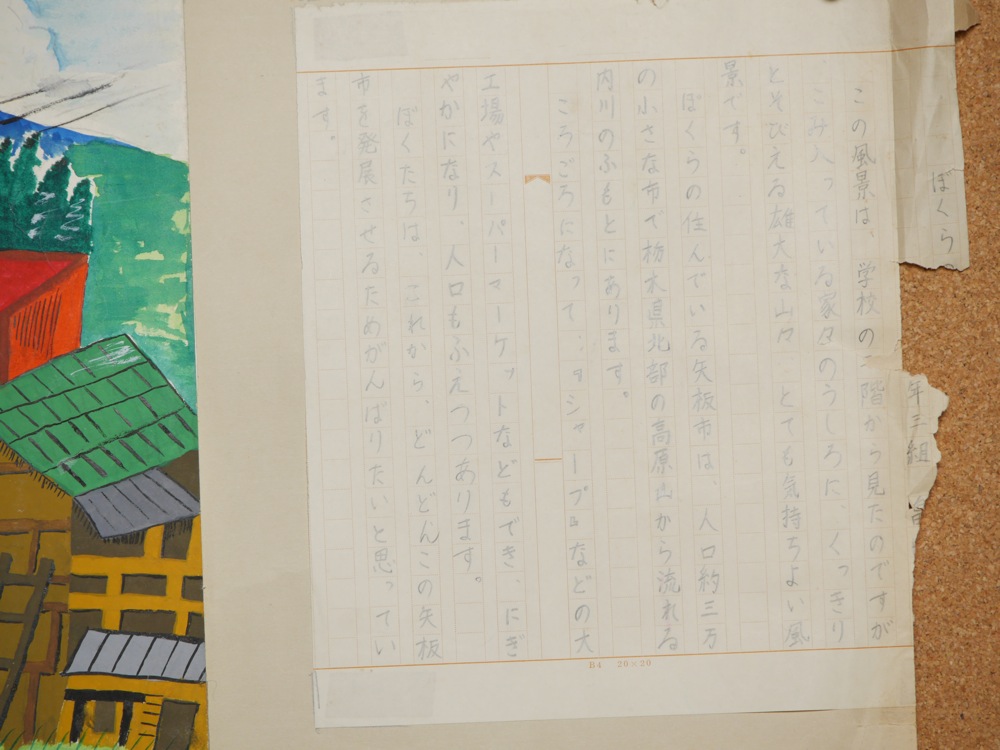 ぼくら
年三組
この風景は、学校の二階から見たのですが
こみ入っている家々のうしろに、くっきり
とそびえる雄大な山々、とても気持ちよい風
景です。
ぼくらの住んでいる矢板市は、人口約三万
の小さな市で栃木県北部の高原山から流れる
内川のふもとにあります。
ころごろになって シャープ』などの大
工場やスーパーマーケットなどもでき、にぎ
やかになり、人口もふえつつあります。
ぼくたちは、これから、どんどんこの矢板
市を発展させるためがんばりたいと思ってい
ます。
B4 20×20